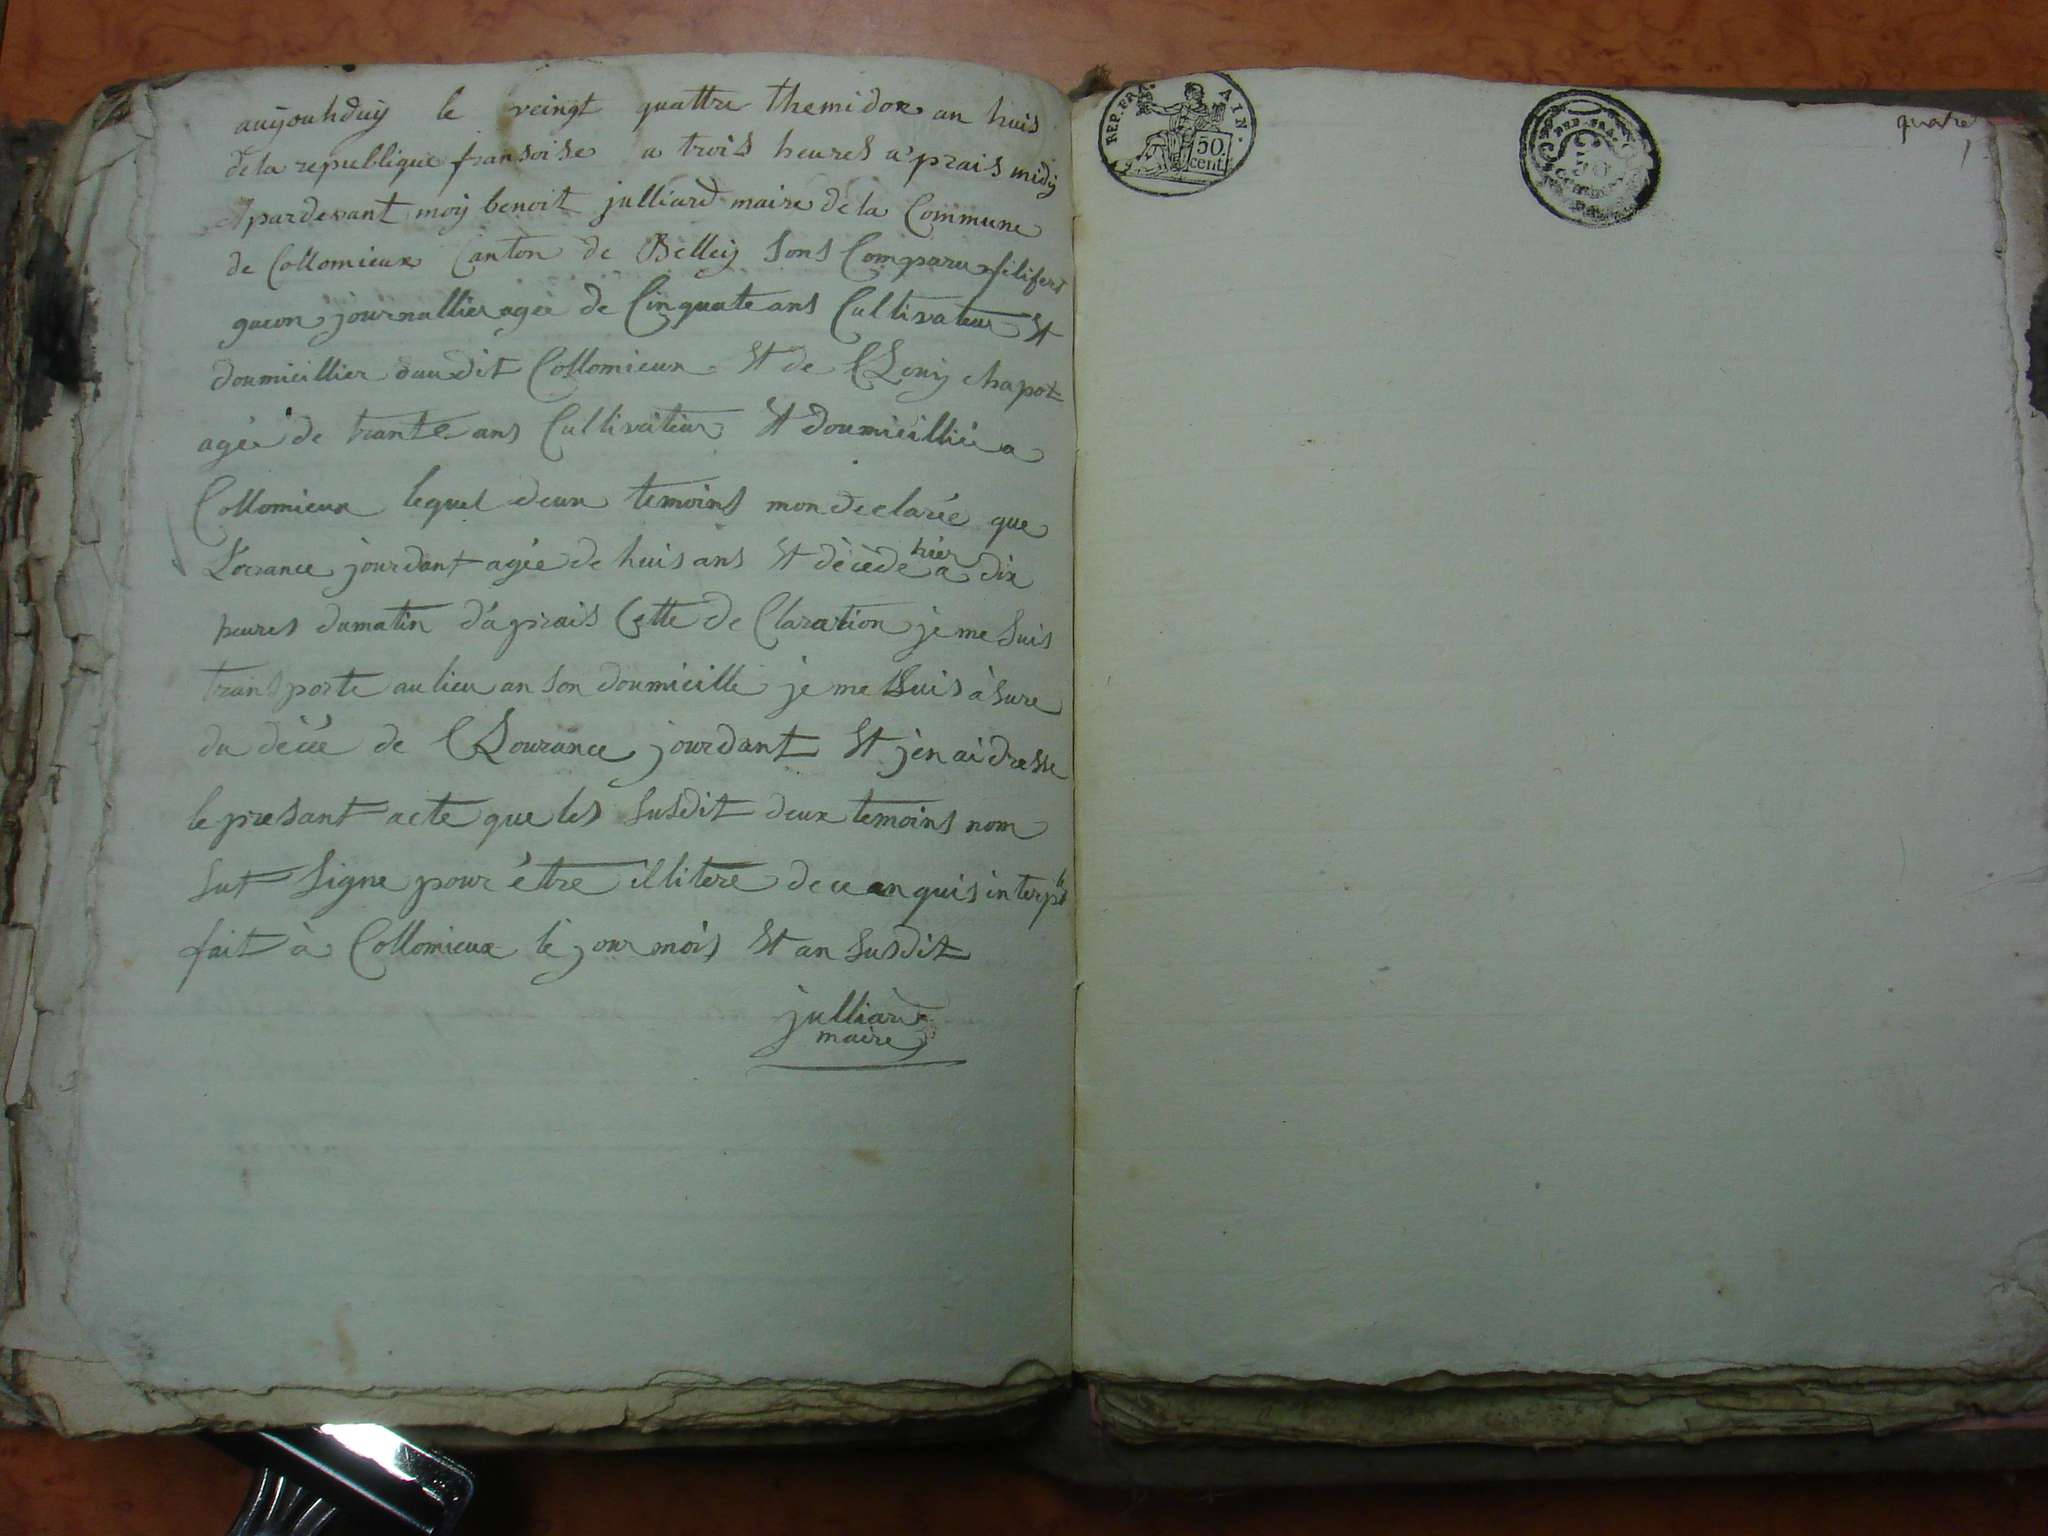 aujouhduij le veingt quattre themidor an huis
de la republique fransoise a trois heures a'prais midij
pardevant moij benoit julliard maire de la Commune
de Collomieux Canton de Belleij Sons Comparu filifert
gueon journallier agée de Cinquate ans Cultivateur Et
doumicillier dau dit Collomieux Et de Louij chapot
agée de trante ans Cultivateur Et doumicilliée a
Collomieux lequel deux temoins mon declarée que
Lorance jourdant agée de huis ans Et décède hier a dix
heures du matin d'aprais Cette de Claration je me Suis
transporte au lieu an Son doumicille je me Suis àSure
du décée de Lourance jourdant Et j'en ai dresse
le presant acte que les Susdit deux temoins nom
Sut Signe pour être illitere de ce anquis interpé
fait à Collomieux le jour mois Et an Susdit
julliard
maire
REP. FRA. AIN.
50
cent
quatre